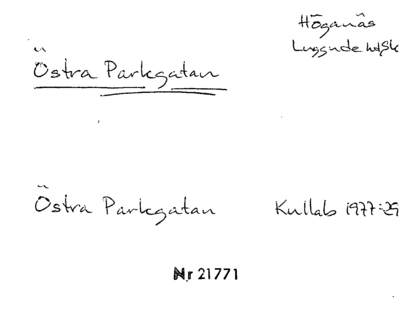 Höganäs
Luggude hd, Sk
Östra Parkgatan
Östra Parkgatan Kullab 1977:29
Nr 21771